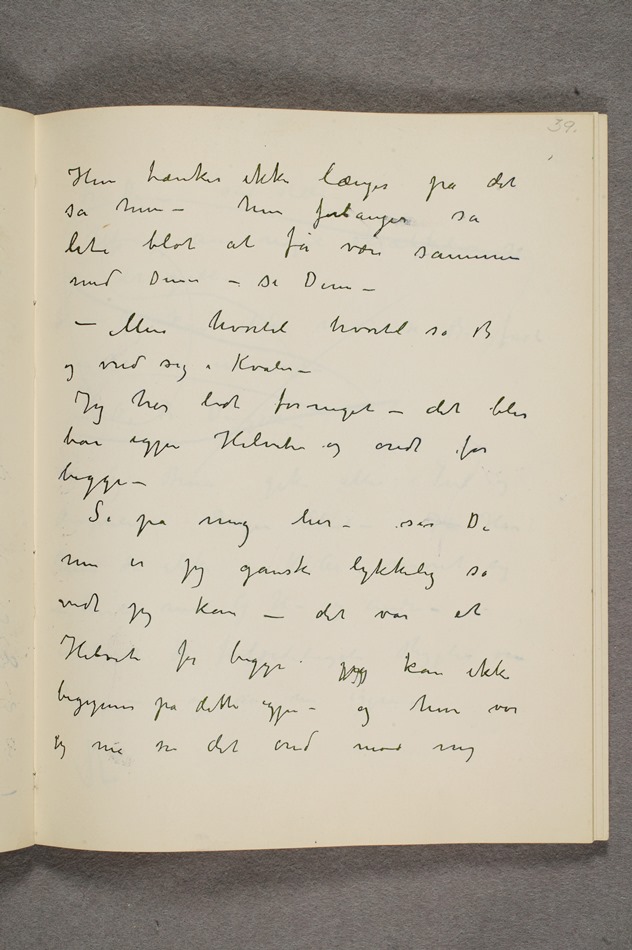 39.
Hun tænker ikke længer på det
sa hun – hun forlanger så
lite blot at få være sammen
med Dem – se Dem –
– Men hvortil hvortil sa B
og vred sig i Kvaler –
Jeg har lidt formeget – det blir
bare igjen Helvete og ondt for
begge –
Se på mig her – ser De
nu er jeg ganske lykkelig så
vidt jeg kan – det var et
Helvete for begge. jeg kan ikke
begynne på dette igjen – og hun var
jeg må si det ond mod mig